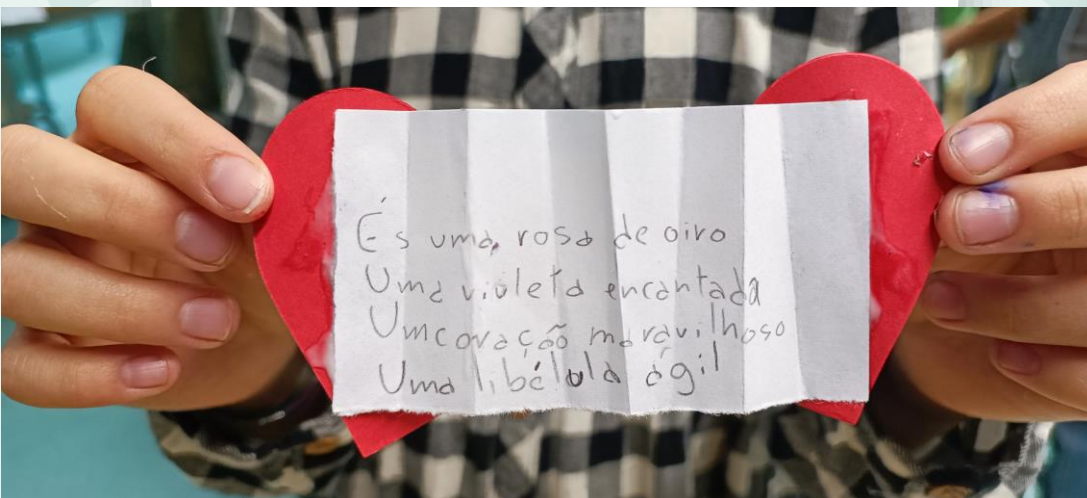 És uma rosa de oiro
Uma violeta encantada
Um coração maravilhoso
Uma libélula ágil